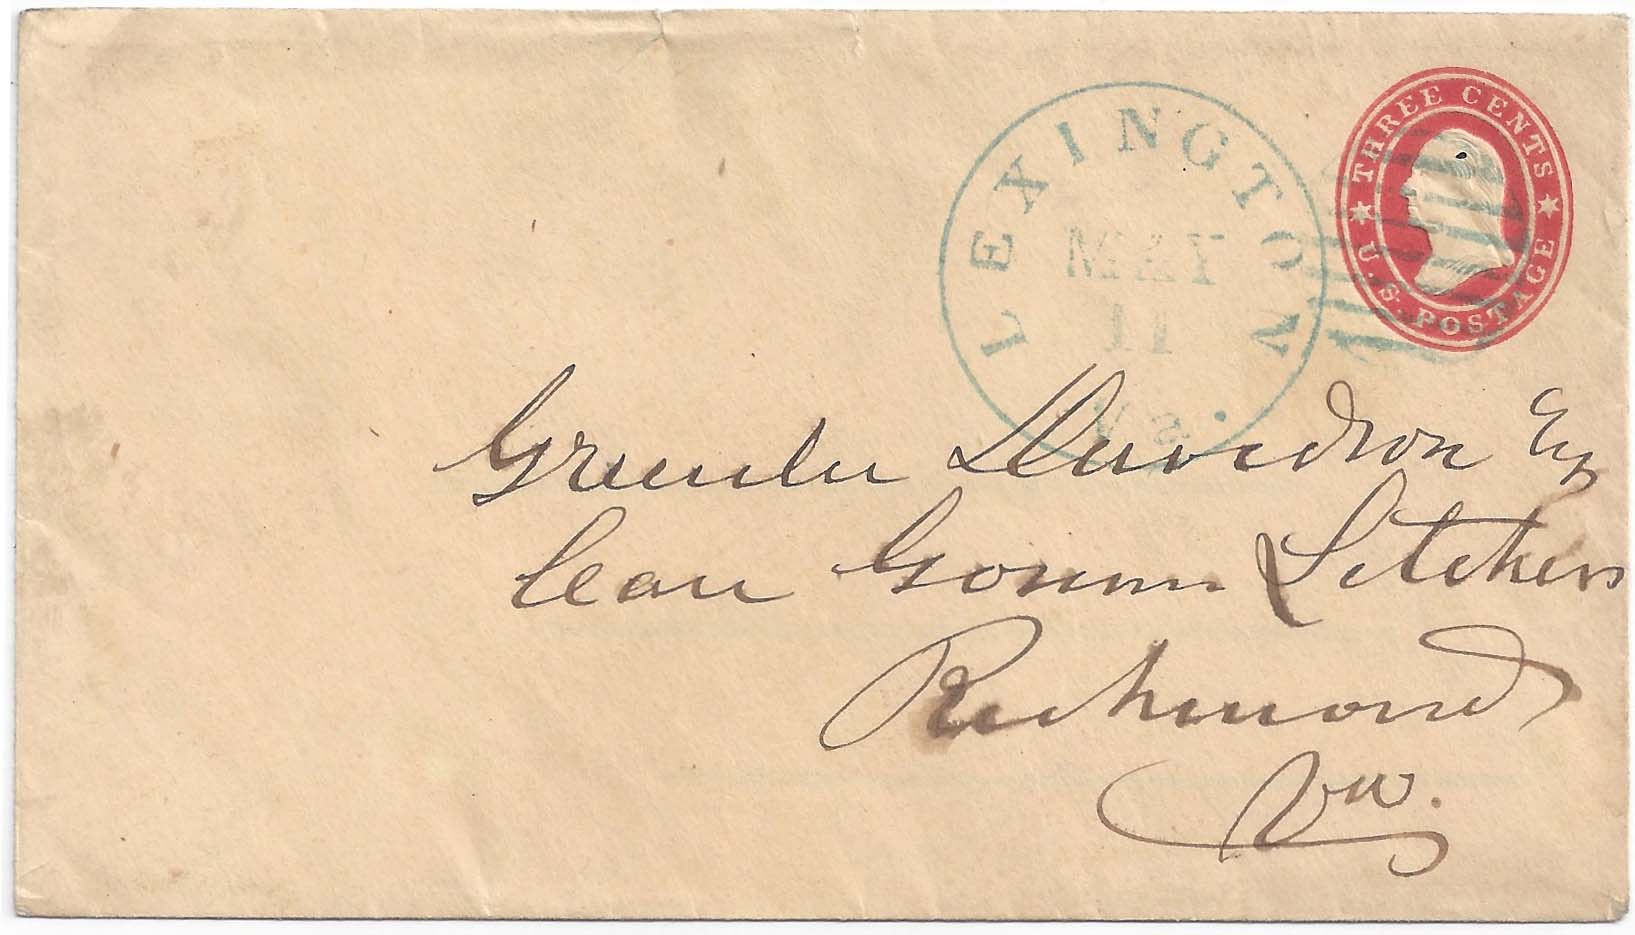 THREE CENTS
U.S. POSTAGE
LEXINGTON
MAY
11
Va.
Greenlee Davidson Esq
Care Governor Letchers
Richmond
Va.